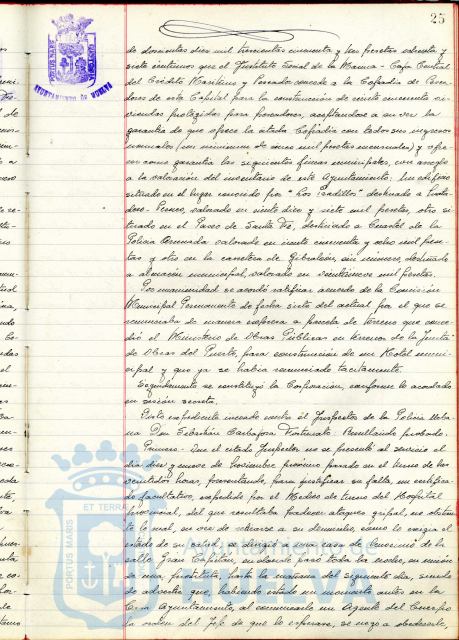 25
PORTUS MARIS ET TERRAE CUSTODIA
AYUNTAMIENTO DE HUELVA
de doscientas diez mil trescientas cincuenta y tres pesetas ochenta y
siete centimos que el Instituto Social de la Marina - Caja Central
del Crédito Maritimo y Pescador concede a la Cofradia de Pesca-
dores de esta Capital para la construcción de ciento cincuenta vi-
viendas protegidas para pescadores, aceptandose a su vez la
garantia de que ofrece la citada Cofradia con todos sus ingresos
normales (con minimum de cinco mil pesetas mensuales) y ofre-
cer como garantia las siguientes fincas municipales, con arreglo
a la valoración del inventario de este Ayuntamiento: Un edificio
situado en el lugar conocido por "Los
destinado a
valorado en ciento diez y siete mil pesetas, otro si-
tuado en el Paseo de Santa Fé, destinado a Cuartel de la
Policia Armada valorado en ciento cincuenta y ocho mil pese-
tas y otro en la carretera de Gibraleón, sin número, destinado
a almacén municipal, valorado en veintinueve mil pesetas.
Por unanimidad se acordó ratificar acuerdo de la Comisión
Municipal Permanente de fecha siete del actual por el que se
renunciaba de manera expresa a parcela de terreno que conce-
dió el Ministerio de Obras Públicas en terrenos de la Junta
de Obras del Puerto, para construcción de un Hotel muni-
cipal y que ya se habia renunciado tacitamente.
Seguidamente se constituyó la Corporación, conforme lo acordado
en sesión secreta.
Visto expediente incoado contra el Inspector de la Policia Urba-
na Don Sebastián Carbajosa
Resultando probado:
Primero: Que el citado Inspector no se presentó al servicio el
dia diez y nueve de Noviembre próximo pasado en el turno de las
veintidos horas, presentando, para justificar su falta, un certifica-
do facultativo, expedido por el Médico de turno del Hospital
Provincial, del que resultaba padecer ataques gripal, no obstan-
te lo cual, en vez de retirarse a su domicilio, como lo exigia el
estado de su salud, se dirigió a una casa de lenocinio de la
calle Gran Capitán, en donde pasó toda la noche, en unión
de una prostituta, hasta la mañana del siguiente dia, siendo
de advertir que, habiendo estado un momento antes en la
Casa Ayuntamiento, al comunicarle un Agente del Cuerpo
la orden del Jefe de que lo esperase, se negó a obedecerle,
Ayuntamiento de
HUELVA